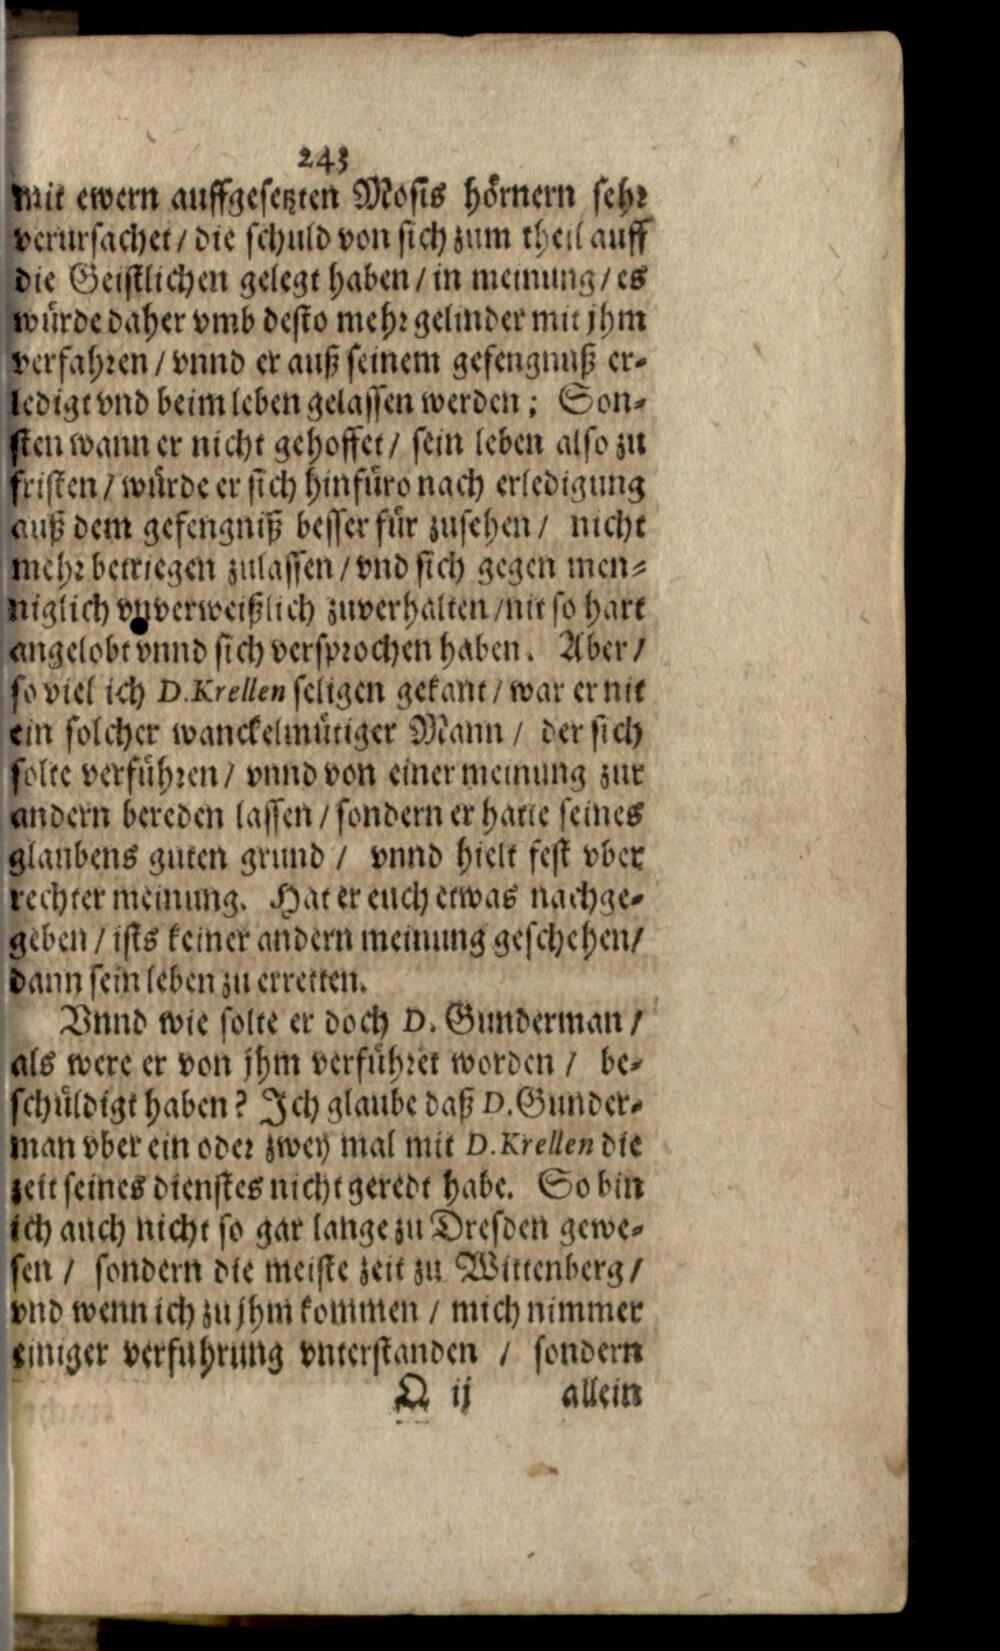 243
mit ewern auffgesetzten Mosis hörnern sehr
verursachet / die schuld von sich zum theil auff
die Geistlichen gelegt haben / in meinung / es
würde daher vmb desto mehr gelinder mit jhm
verfahren / vnnd er auß seinem gefengnuß er-
ledigt vnd beim leben gelassen werden ; Son-
sten wann er nicht gehoffet / sein leben also zu
fristen / würde er sich hinfüro nach erledigung
auß dem gefengniß besser für zusehen / nicht
mehr betriegen zulassen / vnd sich gegen men-
niglich vnverweißlich zuverhalten / nit so hart
angelobt vnnd sich versprochen haben. Aber /
so viel ich D. Krellen seligen gekant / war er nit
ein solcher wanckelmütiger Mann / der sich
solte verführen / vnnd von einer meinung zur
andern bereden lassen / sondern er hatte seines
glaubens guten grund / vnnd hielt fest vber
rechter meinung. Hat er euch etwas nachge-
geben / ists keiner andern meinung geschehen /
dann sein leben zu erretten.
Vnnd wie solte er doch D. Gunderman /
als were er von jhm verführet worden / be-
schüldigt haben? Ich glaube daß D. Gunder-
man vber ein oder zwey mal mit D. Krellen die
zeit seines dienstes nicht geredt habe. So bin
ich auch nicht so gar lange zu Dresden gewe-
sen / sondern die meiste zeit zu Wittenberg /
vnd wenn ich zu jhm kommen / mich nimmer
einiger verfuhrung vnterstanden / sondern
Q ij allein